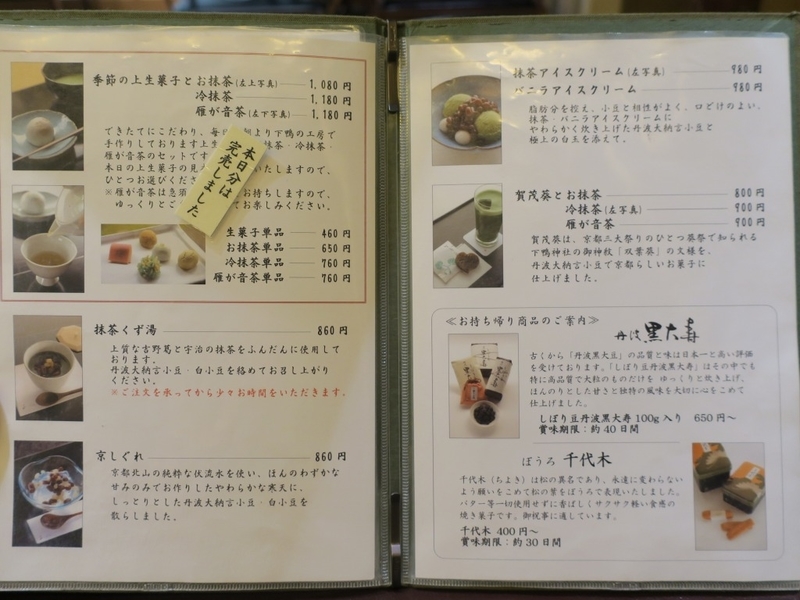 季節の上生菓子とお抹茶(左上写真) 1,080円
冷抹茶 1,180円
雁が音茶(左下写真) 1,180円
できたてにこだわり、毎日 朝より下鴨の工房で
手作りしております上生 抹茶・冷抹茶・
雁が音茶のセットです
本日の上生菓子の見 いたしますので、
ひとつお選びくださ
※雁が音茶は急須 お持ちしますので、
ゆっくりとご てお楽しみください。
本日分は
完売しました
生菓子単品 460円
お抹茶単品 650円
冷抹茶単品 760円
雁が音茶単品 760円
抹茶くず湯 860円
上質な吉野葛と宇治の抹茶をふんだんに使用して
おります。
丹波大納言小豆・白小豆を絡めてお召し上がり
ください。
※ご注文を承ってから少々お時間をいただきます。
京しぐれ 860円
京都北山の純粋な伏流水を使い、ほんのわずかな
甘みのみでお作りしたやわらかな寒天に、
しっとりとした丹波大納言小豆・白小豆を
散らしました。
抹茶アイスクリーム(左写真) 980円
バニラアイスクリーム 980円
脂肪分を控え、小豆と相性がよく、口どけのよい、
抹茶・バニラアイスクリームに
やわらかく炊き上げた丹波大納言小豆と
極上の白玉を添えて。
賀茂葵とお抹茶 800円
冷抹茶(左写真) 900円
雁が音茶 900円
賀茂葵は、京都三大祭りのひとつ葵祭で知られる
下鴨神社の御神紋「双葉葵」の文様を、
丹波大納言小豆で京都らしいお菓子に
仕上げました。
≪お持ち帰り商品のご案内≫
丹波黒大寿
古くから「丹波黒大豆」の品質と味は日本一と高い評価
を受けております。「しぼり豆丹波黒大寿」はその中でも
特に高品質で大粒のものだけを ゆっくりと炊き上げ、
ほんのりとした甘さと独特の風味を大切に心をこめて
仕上げました。
しぼり豆丹波黒大寿 100g入り 650円～
賞味期限：約40日間
ぼうろ 千代木
千代木（ちよき）は松の異名であり、永遠に変わらない
よう願いをこめて松の葉をぼうろで表現いたしました。
バター等一切使用せずに香ばしくサクサク軽い食感の
焼き菓子です。御祝事に適しています。
千代木 400円～
賞味期限：約30日間